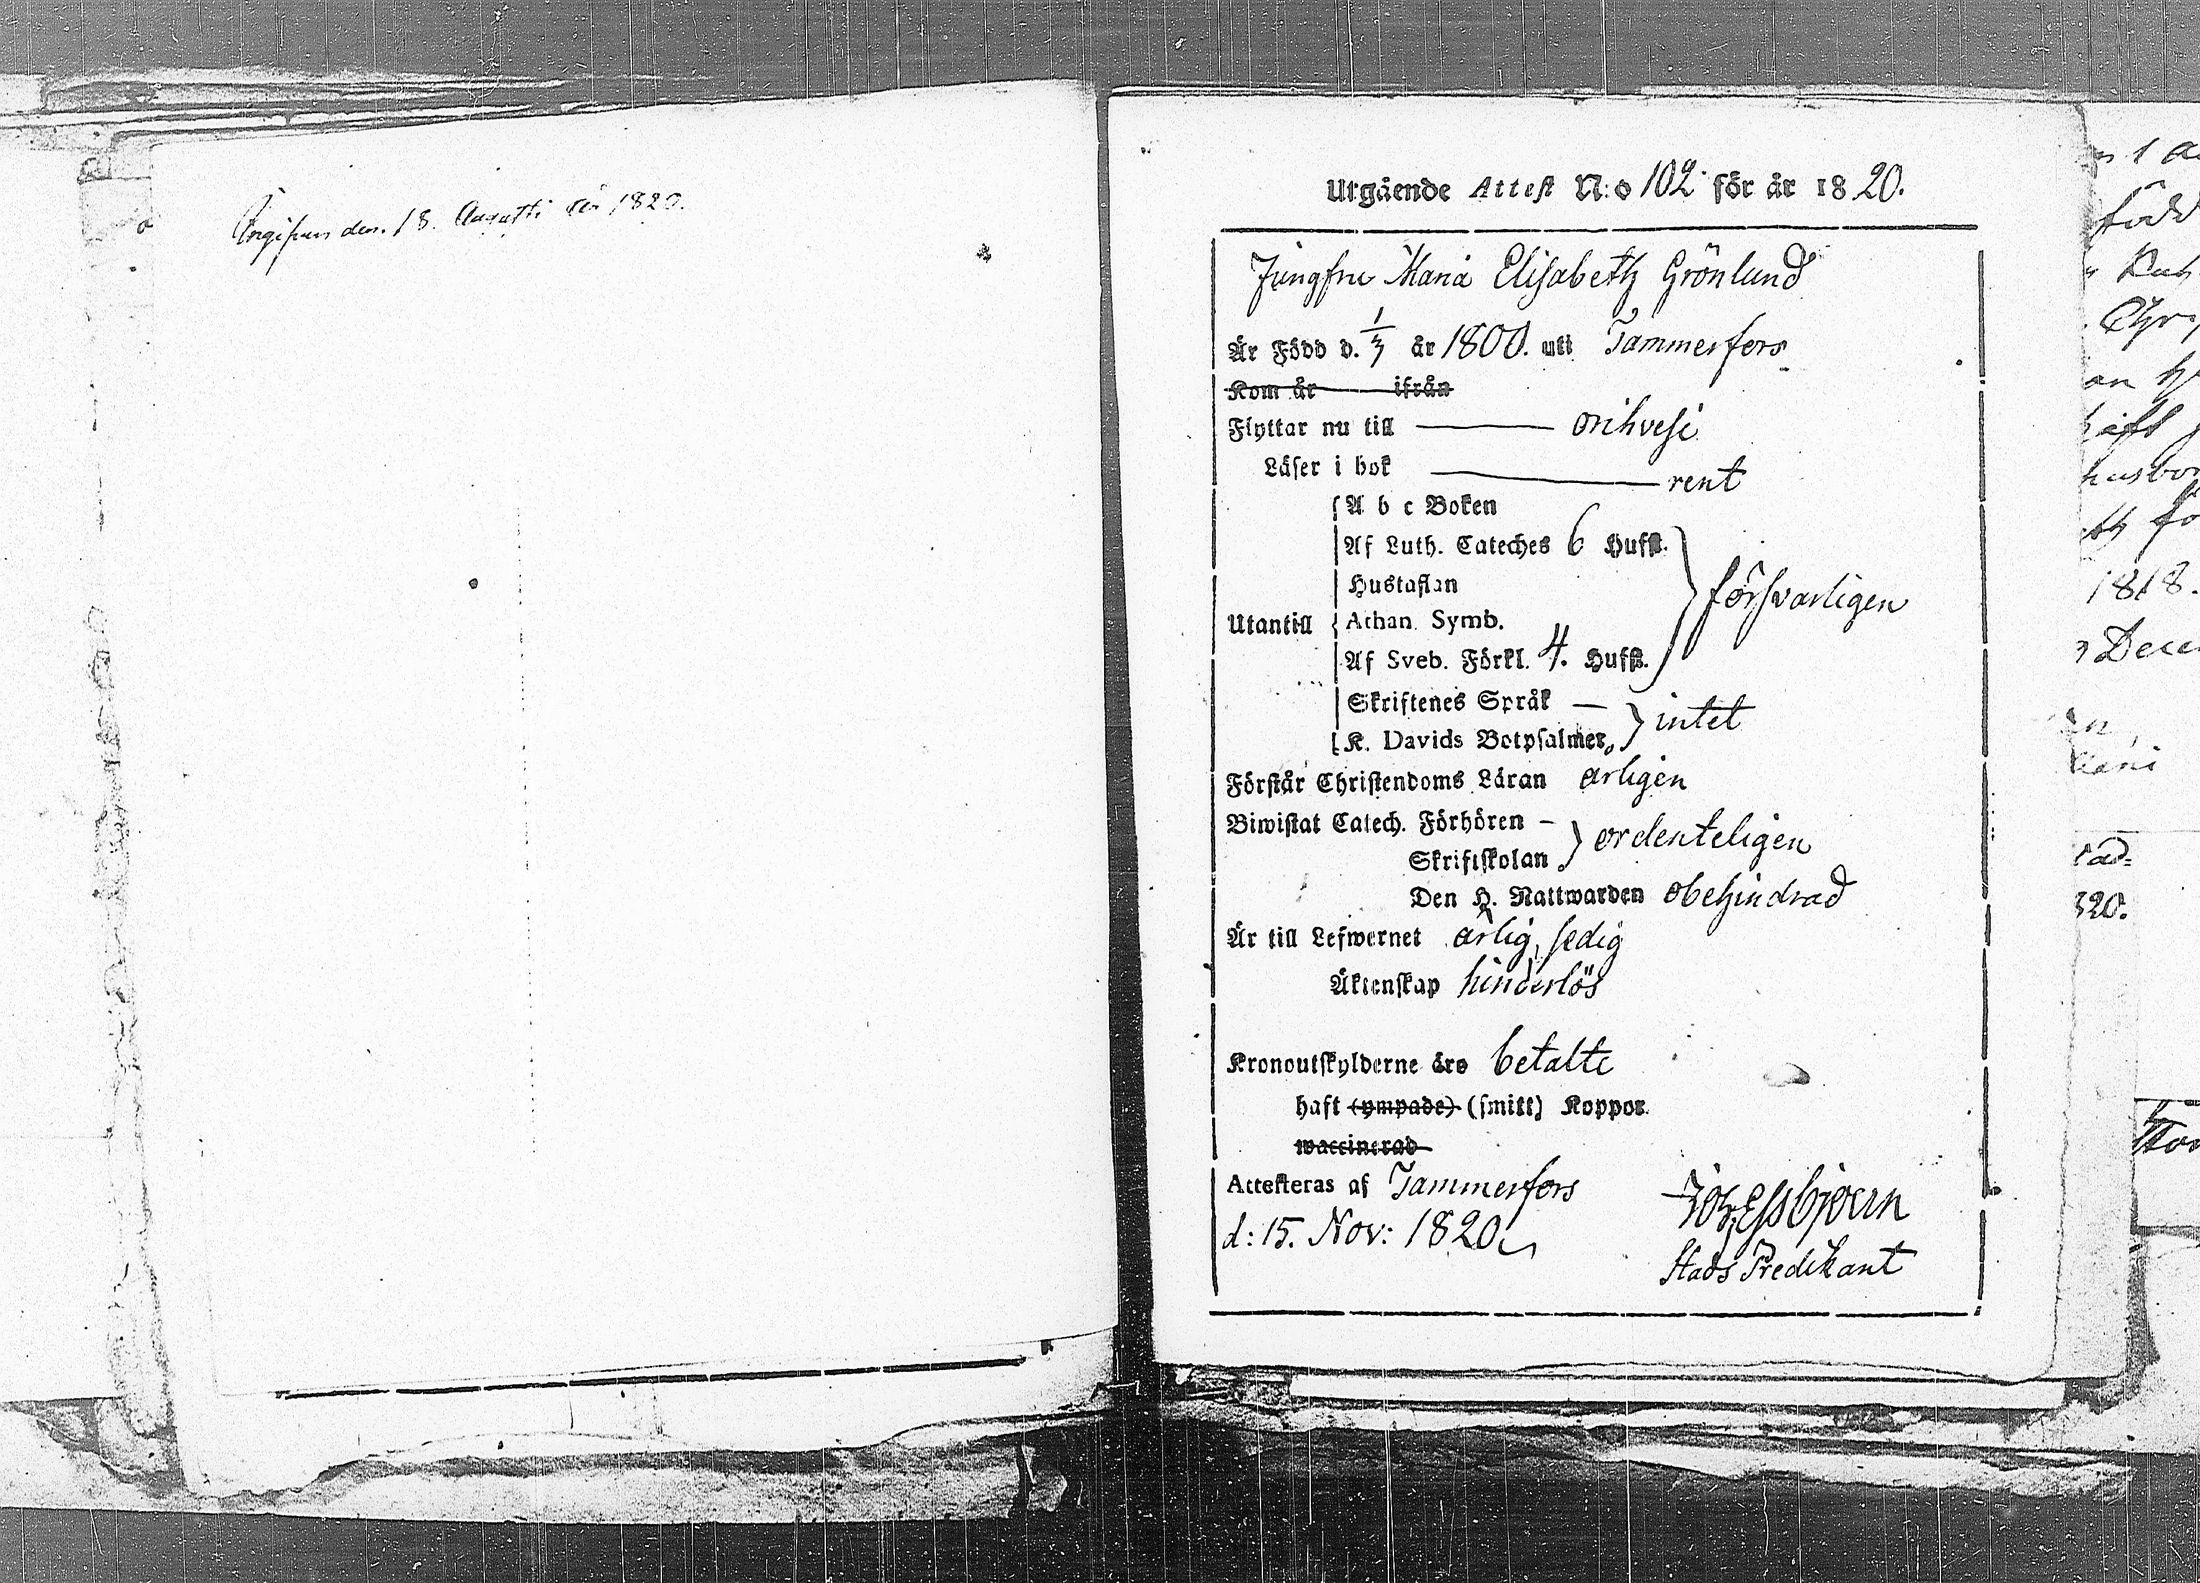 Angifven den. 18. Augusti år 1820.
Utgående Attest N:o 102 för år 1820.
Jungfru Maria Elisabeth Grönlund
Är Född d. 1/3 år 1800. uti Tammerfors
Kom år ifrån
Flyttar nu till orihvesi
Läser i bok rent
A b c Boken
Af Luth. Cateches 6 Hufst.
Hustaflan
försvarligen
Utantill Athan. Symb.
Af Sveb. Förkl. 4. Hufst.
Skriftenes Språk —
intet
K. Davids Botpsalmer,
Förstår Christendoms Läran ärligen
Biwistat Catech. Förhören –
ordenteligen
Skriftskolan
Den H. Nattwarden obehindrad
Är till Lefwernet ärlig, sedig
Äktenskap hinderlös
Kronoutskylderne äro betalte
haft (ympade) (smitt) Koppor
waccinerad
Attesteras af Tammerfors
d: 15. Nov: 1820
Joh. Essbjörn
Stads Predikant
födt
1818.
320.